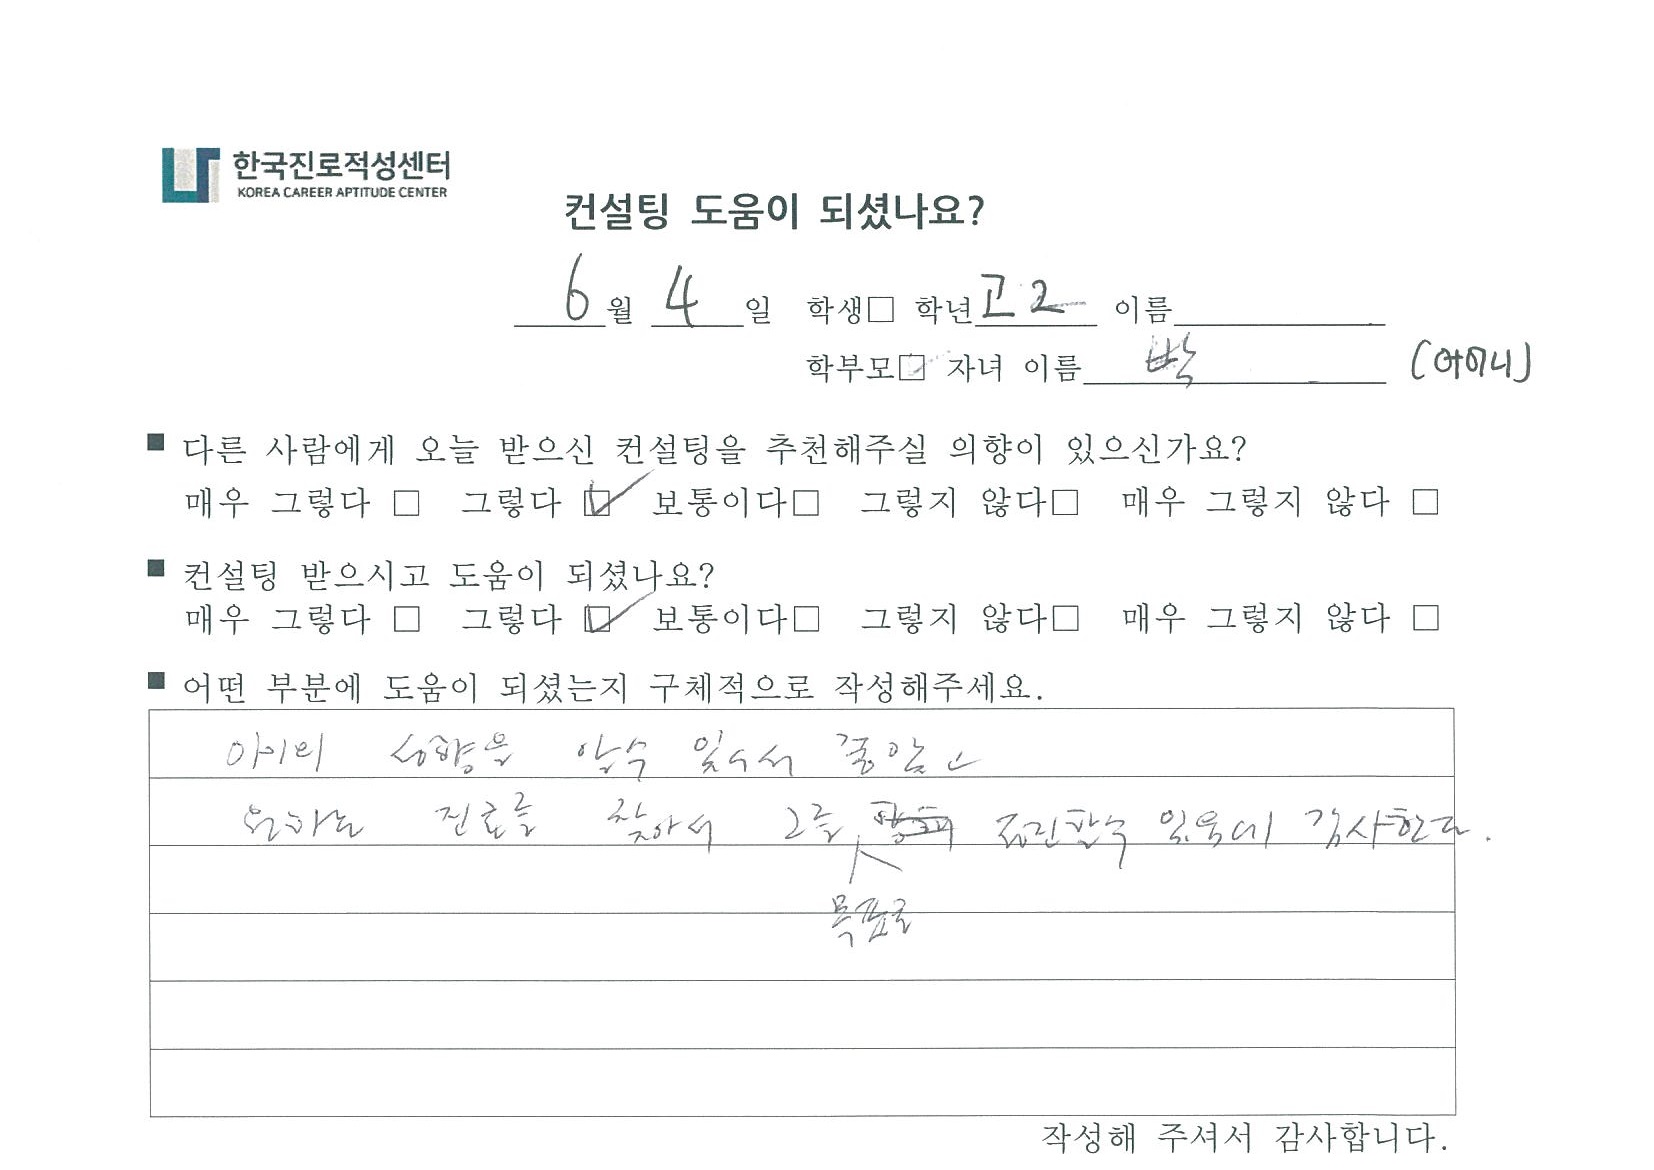 한국진로적성센터
KOREA CAREER APTITUDE CENTER
컨설팅 도움이 되셨나요?
6월 4일 학생□ 학년 고2 이름
학부모☑ 자녀 이름 박 (어머니)
■ 다른 사람에게 오늘 받으신 컨설팅을 추천해주실 의향이 있으신가요?
매우 그렇다 □ 그렇다 ☑ 보통이다□ 그렇지 않다□ 매우 그렇지 않다 □
■ 컨설팅 받으시고 도움이 되셨나요?
매우 그렇다 □ 그렇다 ☑ 보통이다□ 그렇지 않다□ 매우 그렇지 않다 □
■ 어떤 부분에 도움이 되셨는지 구체적으로 작성해주세요.
아이의 성향을 알수 있어서 좋았고
원하는 진로를 찾아서 그를 정진할수 있음에 감사한다.
목표로
작성해 주셔서 감사합니다.